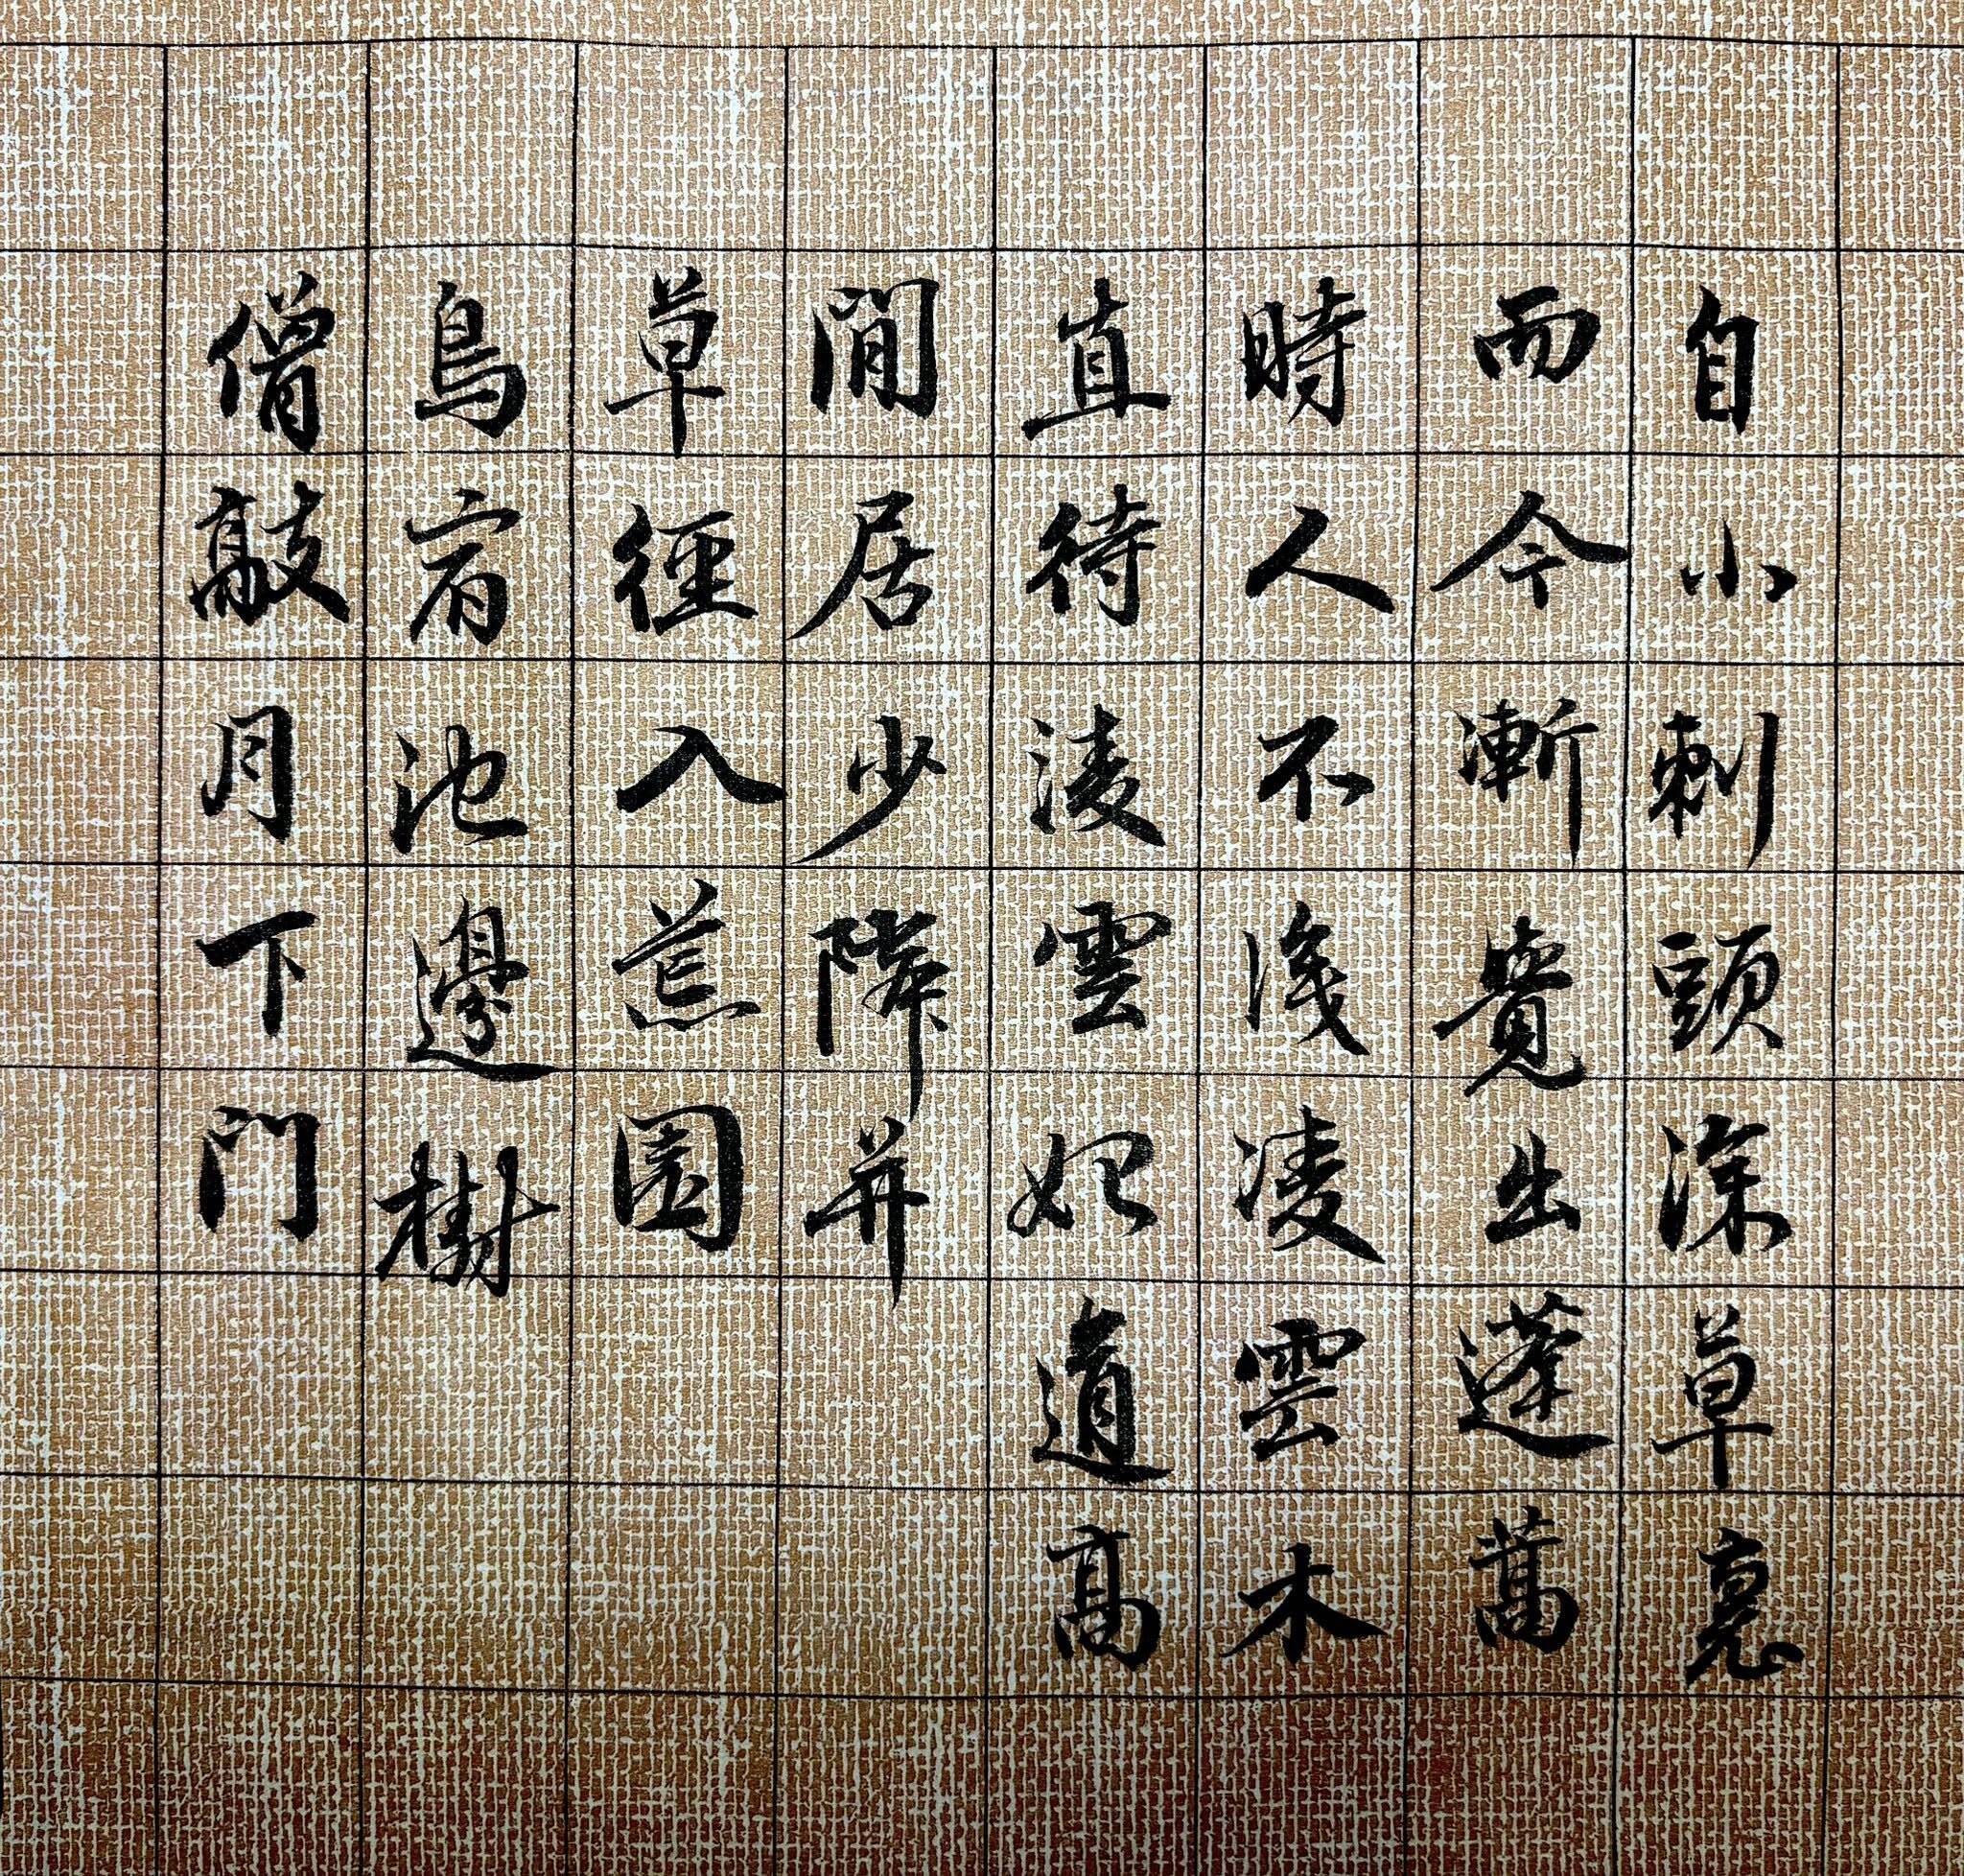 自小刺頭深草裏
而今漸覺出蓬蒿
時人不識凌雲木
直待淩雲始道高
閒居少隣并
草徑入荒園
鳥宿池邊樹
僧敲月下门